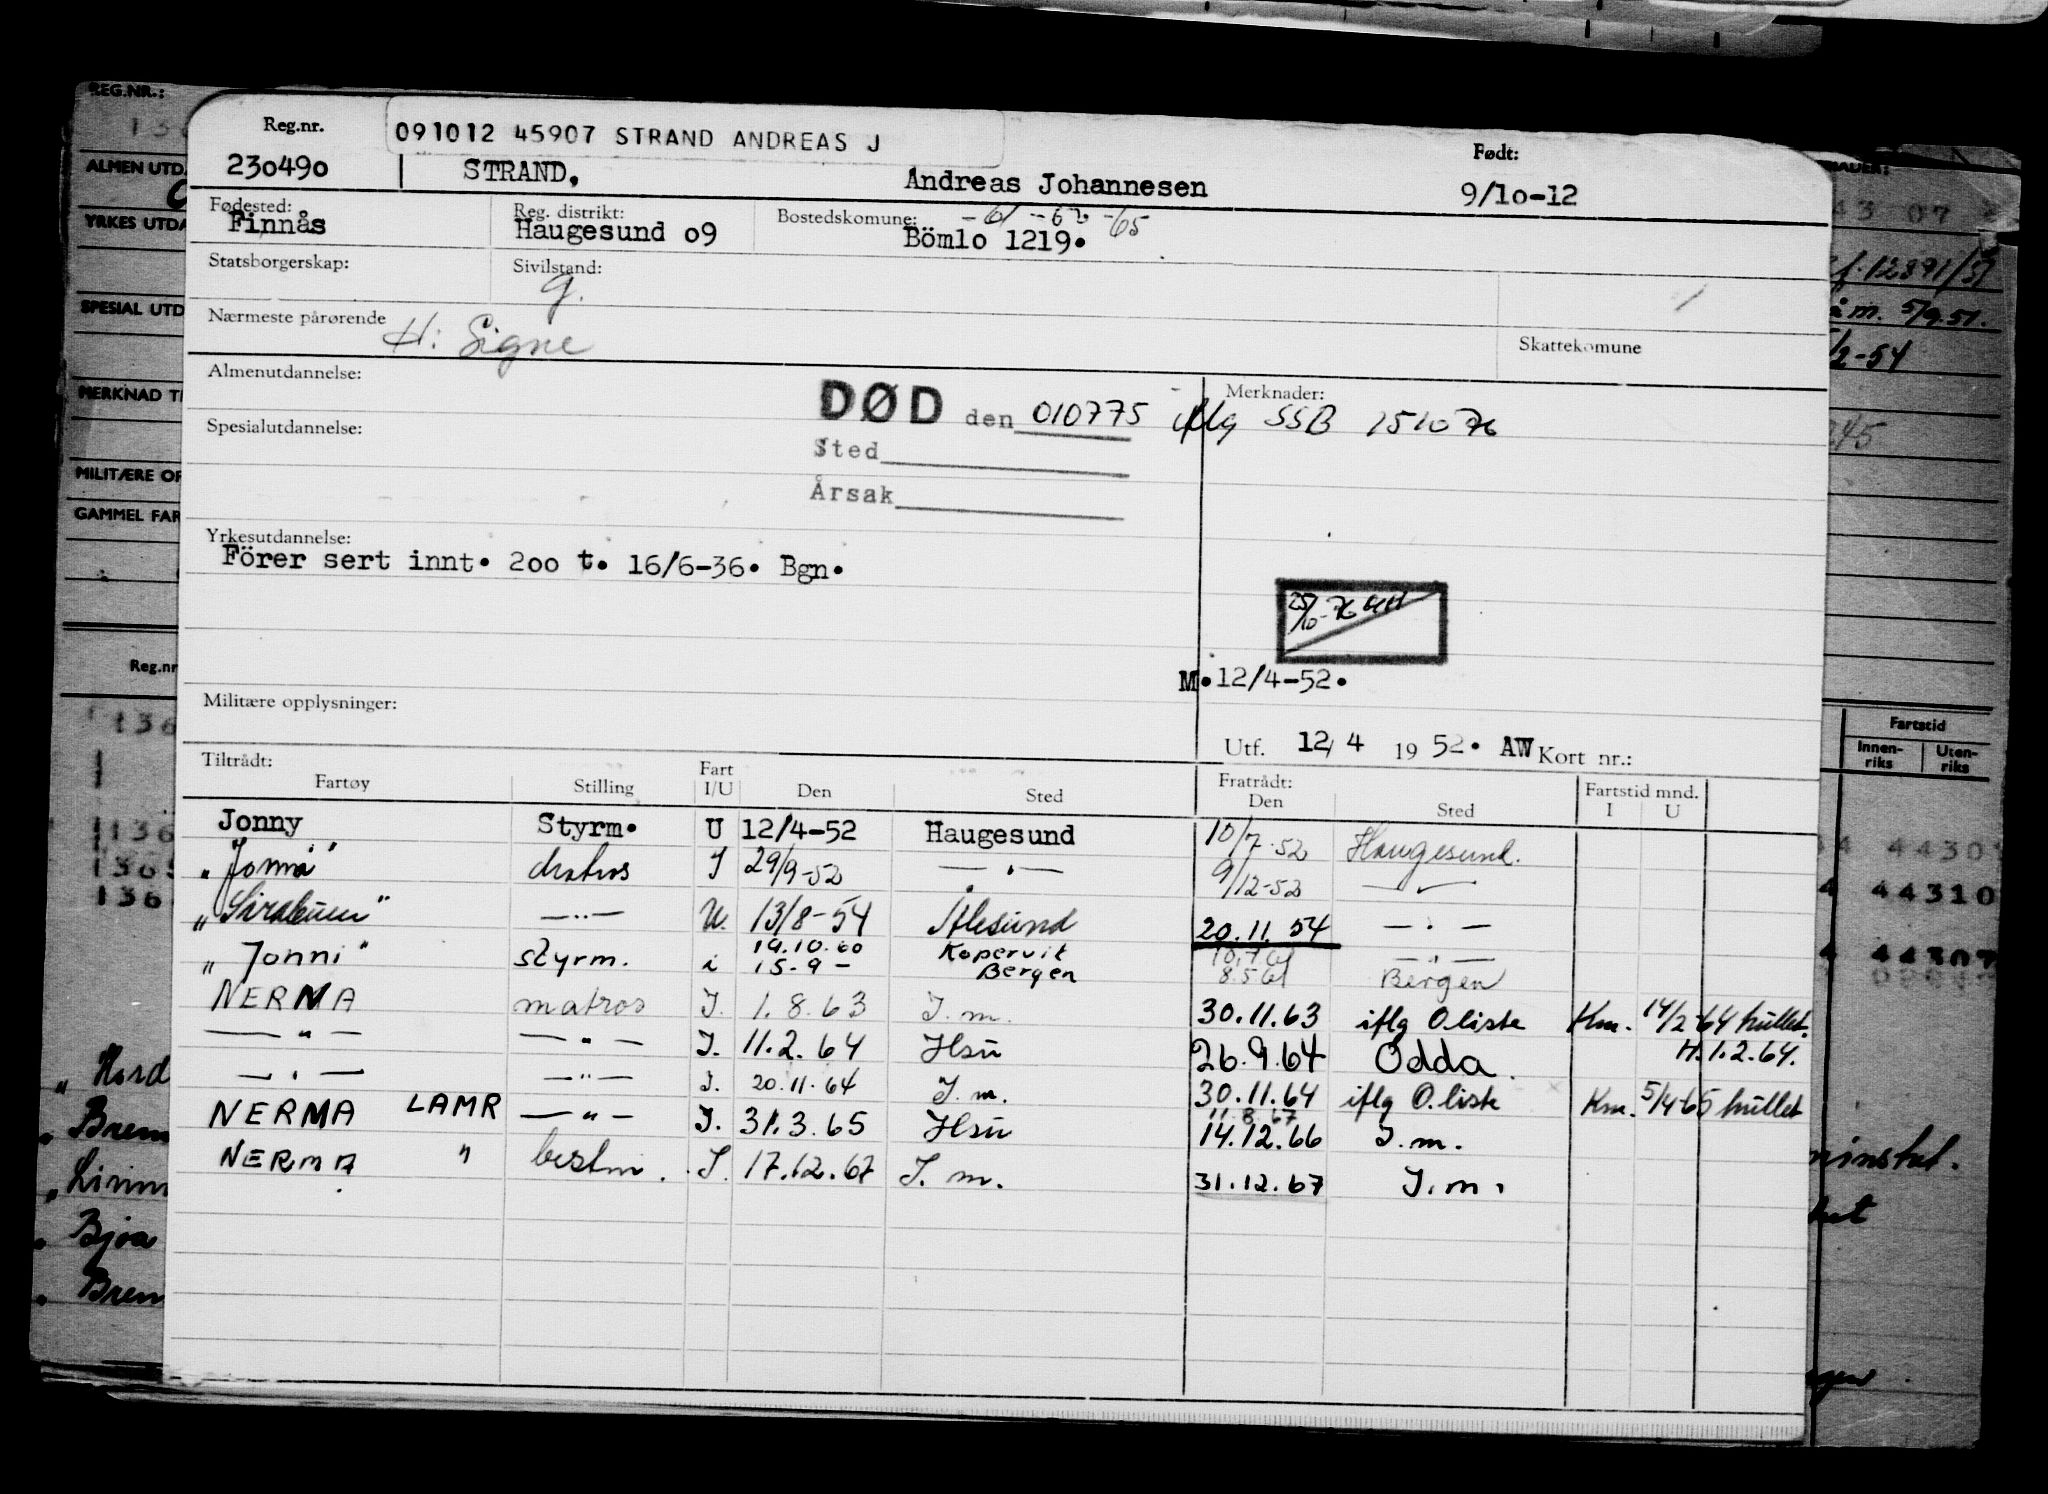 Reg.nr. 091012 45907 STRAND ANDREAS J Født:
230490 STRAND. Andreas Johannesen 9/10-12
Fødested: Reg. distrikt: Bostedskomune: -61 -62 -65
Finnås Haugesund 09 Bömlo 1219.
Statsborgerskap: Sivilstand: g.
Nærmeste pårørende H: Signe Skattekomune
Almenutdannelse: Merknader:
DØD den 010775 iflg SSB 151076
Spesialutdannelse: Sted
Årsak
Yrkesutdannelse:
Förer sert innt. 200 t. 16/6-36. Bgn.
25/10-76
M.12/4-52.
Militære opplysninger:
Utf. 12/4 1952. AW Kort nr.:
Tiltrådt: Fratrådt: Fartstid mnd.
Fartøy Stilling Fart I/U Den Sted Den Sted I U
Jonny Styrm. U 12/4-52 Haugesund 10/7-52 Haugesund.
matros I 29/9-52 — " — 9/12-52 — " —
— " — U. 13/8-54 Ålesund 20.11.54 — " —
"Jonni" styrm. i 19.10.60 Kopervik 10.7.61 — " —
15-9- Bergen 8.5.61 Bergen
NERMA matros I. 1.8.63 I.m. 30.11.63 iflg O.liste Km. 14/2-64 hullet.
— " — — " — I. 11.2.64 Hsu 26.9.64 Odda. H.1.2.64.
— " — — " — I. 20.11.64 I.m. 30.11.64 iflg O.liste Km. 5/4-65 hullet
NERMA LAMR — " — I. 31.3.65 Hsu 11.8.67
14.12.66 I.m.
NERMA " bestm. I. 17.12.67 I.m. 31.12.67 I.m.
REG.NR.:
ALMEN UTD.
YRKES UTDA
SPESIAL UTD
MERKNAD T
MILITÆRE OP
GAMMEL FAR
Reg.nr
136
"Hord
"Brem
"Bjoa
"Brem
43 07
12891/51
5/9.51.
2-54
245
Fartstid
Innen-riks Uten-riks
44310
44307